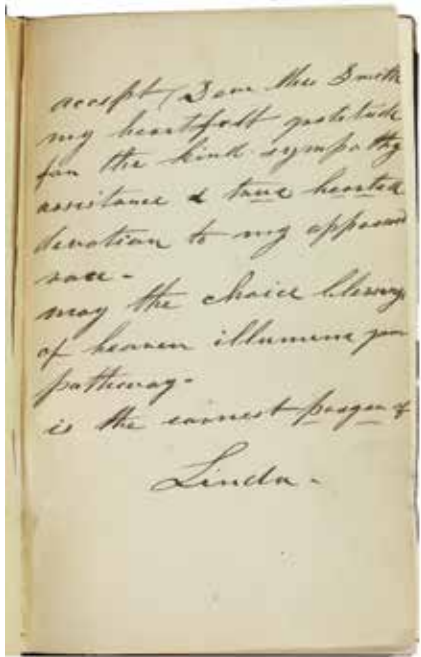 accept Dear Mrs Smith
my heartfelt gratitude
for the kind sympathy
assistance & true hearted
devotion to my oppressed
race -
may the choice blessings
of heaven illumine your
pathway -
is the earnest prayer of
Linda -